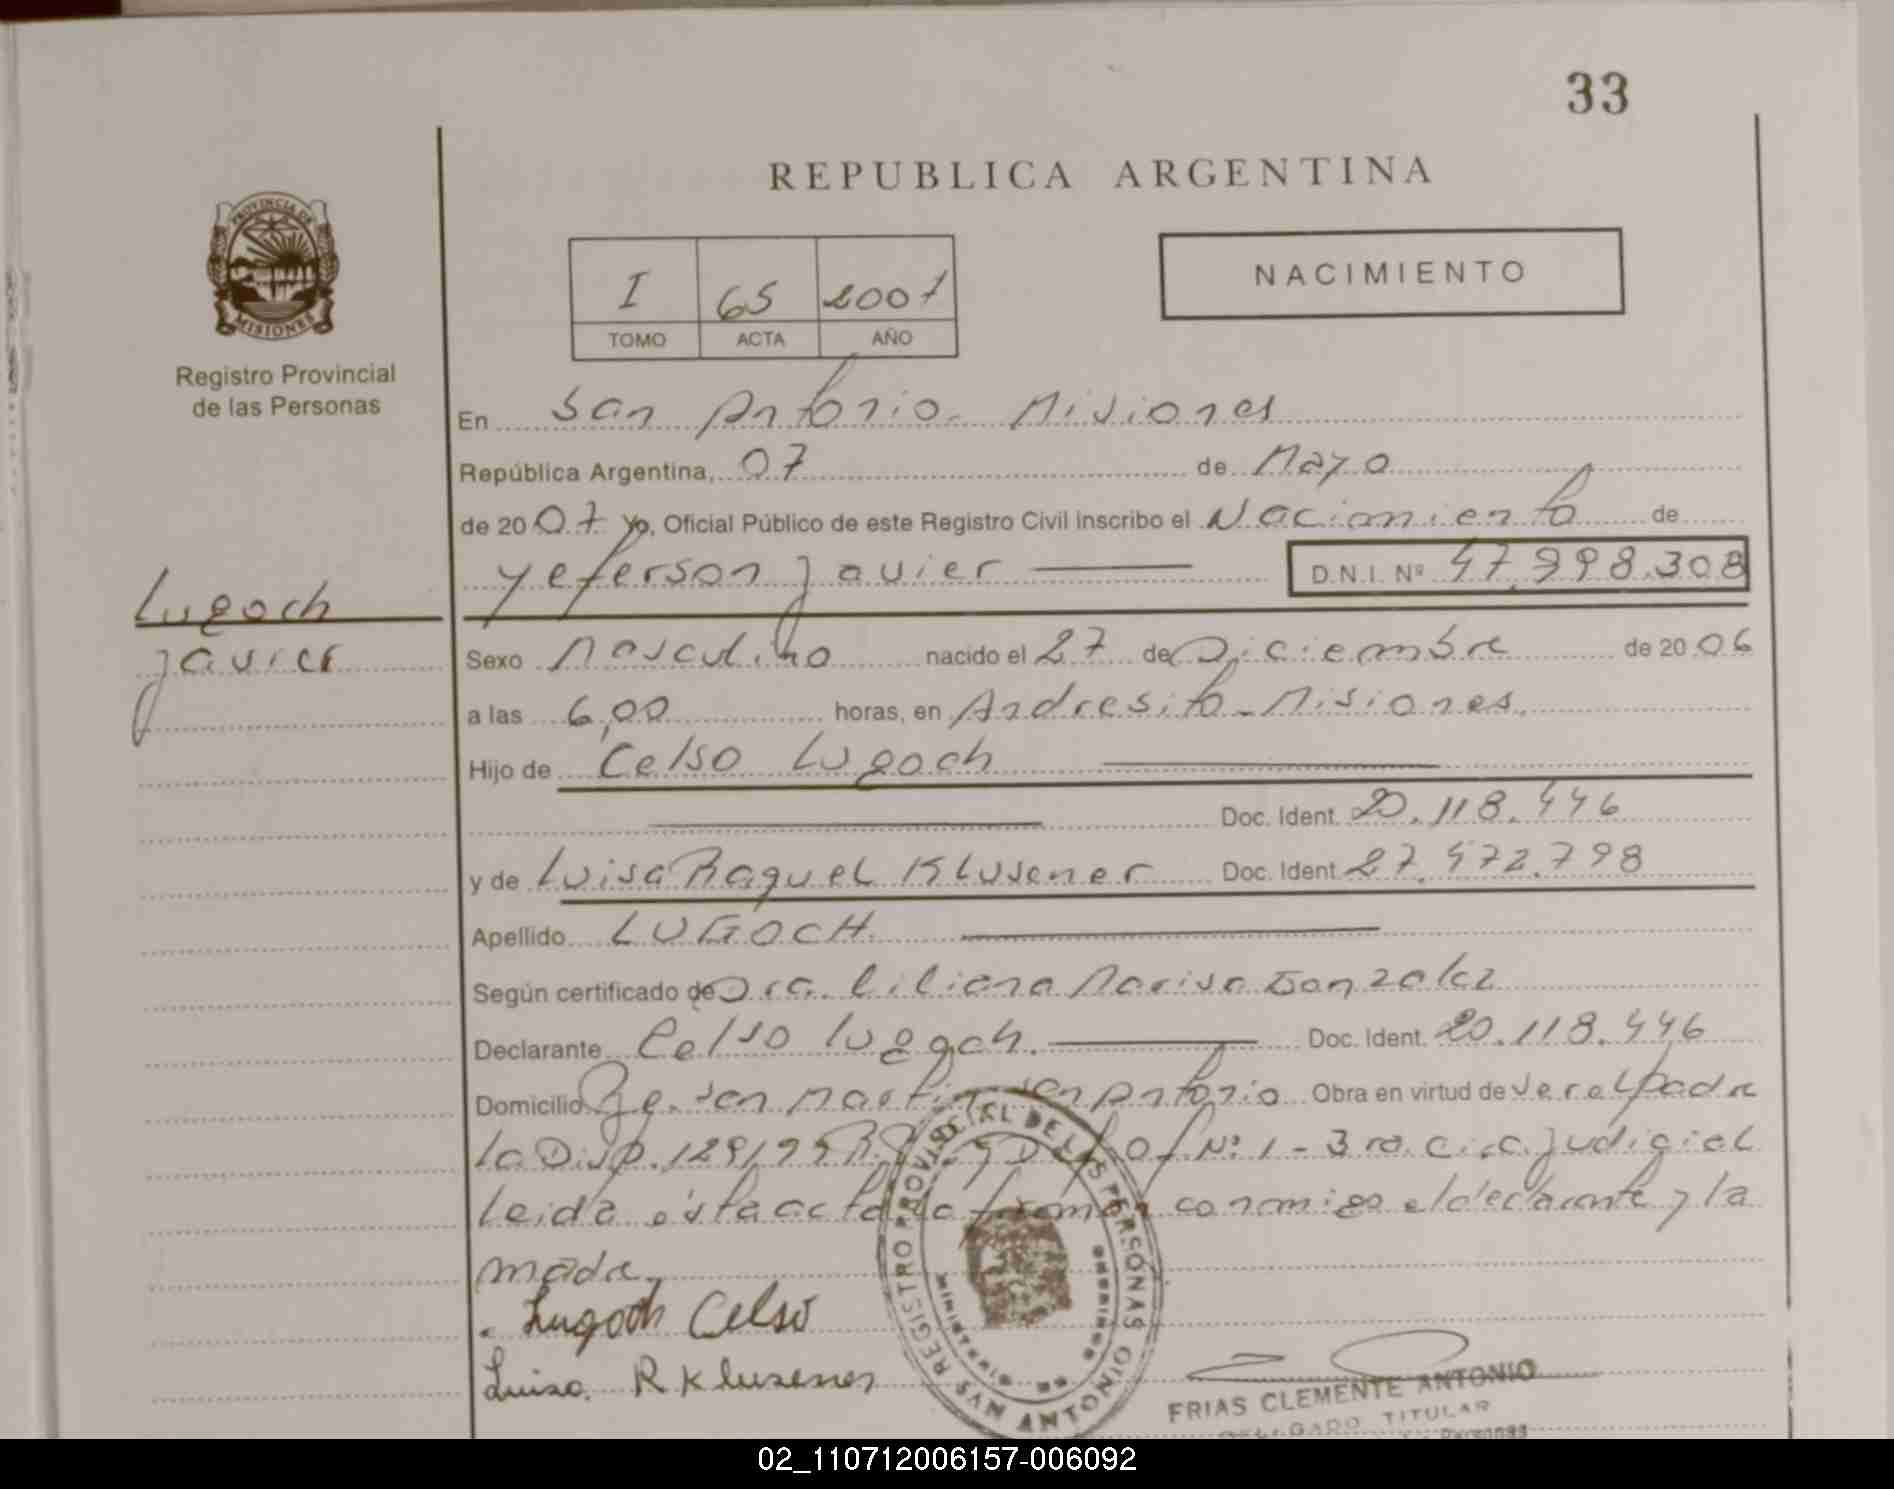 33
REPUBLICA ARGENTINA
PROVINCIA DE
MISIONES
Registro Provincial
de las Personas
I 65 2007
TOMO ACTA AÑO
NACIMIENTO
En San Antonio - Misiones
República Argentina, 07 de Mayo
de 20 07 Yo, Oficial Público de este Registro Civil inscribo el Nacimiento de
Yeferson Javier D.N.I. Nº 47.998.308
Lugoch
Javier
Sexo Masculino nacido el 27 de Diciembre de 20 06
a las 6,00 horas, en Andresito - Misiones.
Hijo de Celso Lugoch
Doc. Ident. 20.118.446
y de Luisa Raquel Klusener Doc. Ident. 27.472.798
Apellido LUGOCH.
Según certificado de Dra. Liliana Marisa Gonzalez
Declarante Celso Lugoch. Doc. Ident. 20.118.446
Domicilio San Antonio Obra en virtud de ser el padre
la Disp. 129/99 Def. Of. Nº 1 - 3 ra. Judicial
leida ésta acta la firman conmigo el declarante y la
madre.
Lugoch Celso
Luisa R Klusener
REGISTRO PROVINCIAL DE LAS PERSONAS
MINISTERIO
SAN ANTONIO
FRIAS CLEMENTE ANTONIO
DELEGADO TITULAR
Personas
02_110712006157-006092